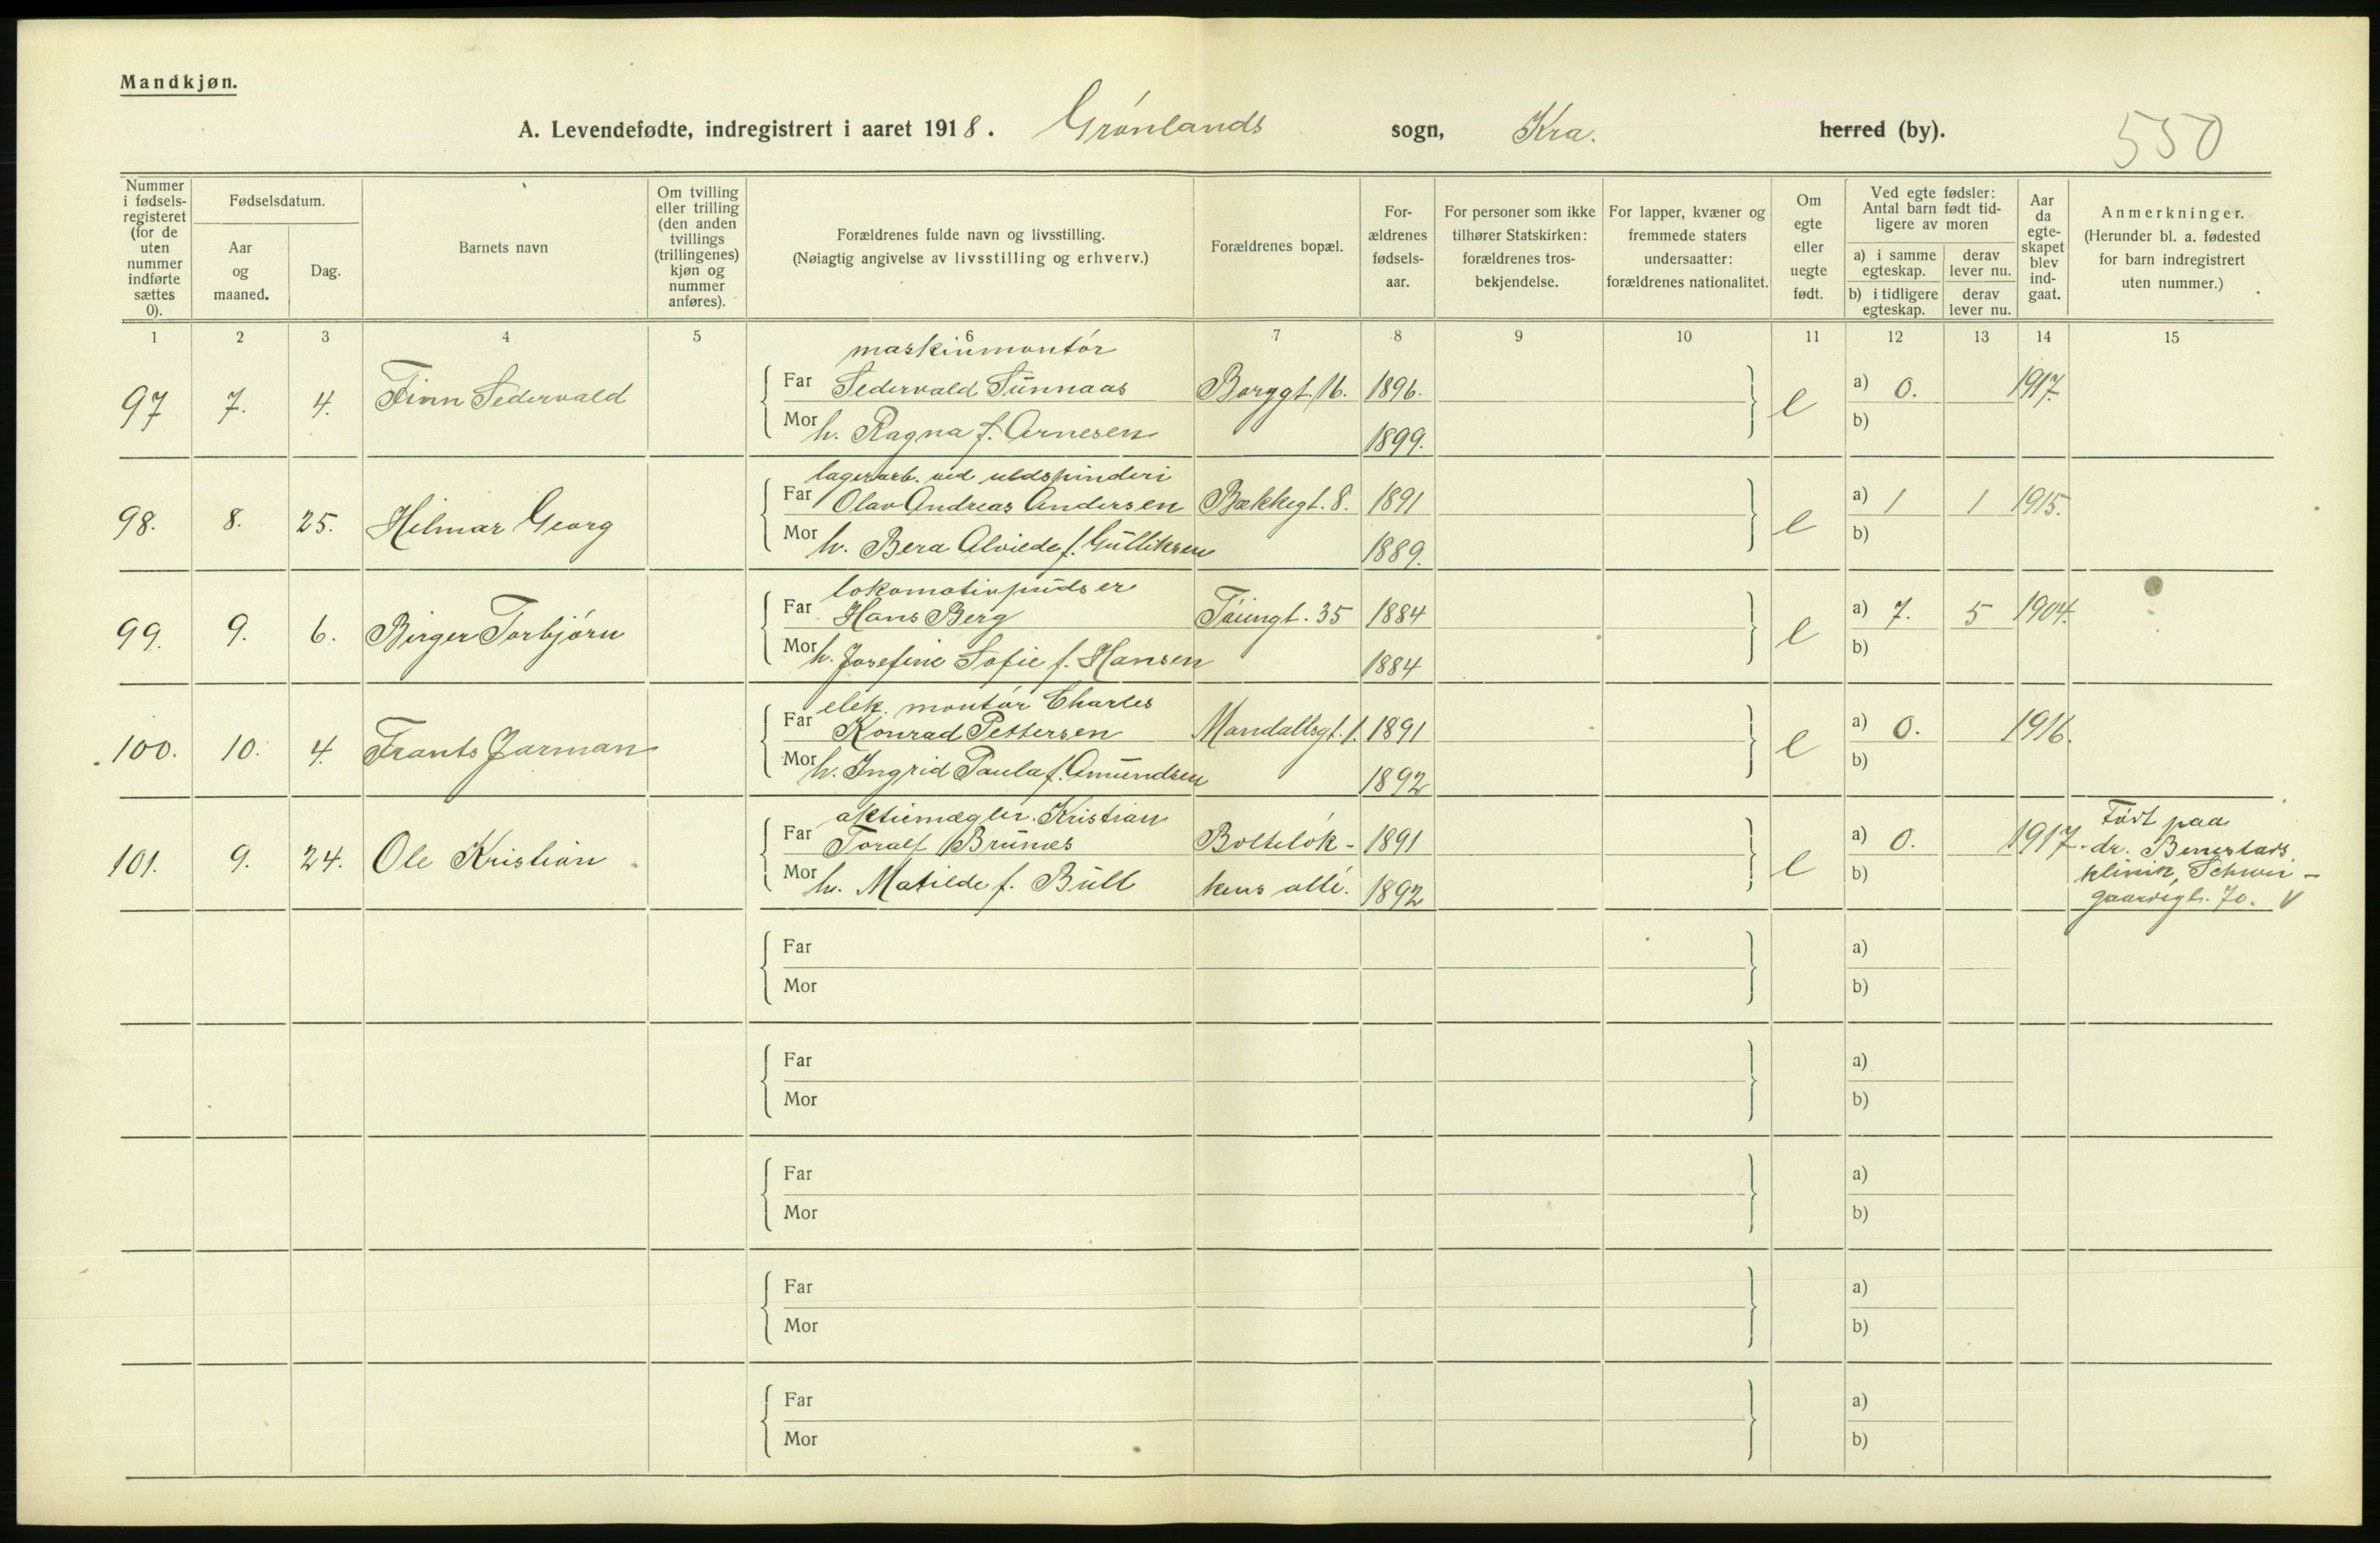 Mandkjøn.
A. Levendefødte, indregistrert i aaret 1918. Grønlands sogn, Kra. herred (by). 550
Nummer i fødselsregisteret (for de uten nummer indførte sættes 0).
Fødselsdatum.
Aar og maaned.
Dag.
Barnets navn
Om tvilling eller trilling (den anden tvillings (trillingenes) kjøn og nummer anføres).
Forældrenes fulde navn og livsstilling.
(Nøiagtig angivelse av livsstilling og erhverv.)
Forældrenes bopæl.
Forældrenes fødselsaar.
For personer som ikke tilhører Statskirken: forældrenes trosbekjendelse.
For lapper, kvæner og fremmede staters undersaatter: forældrenes nationalitet.
Om egte eller uegte født.
Ved egte fødsler: Antal barn født tidligere av moren
a) i samme egteskap. derav lever nu.
b) i tidligere egteskap. derav lever nu.
Aar da egteskapet blev indgaat.
Anmerkninger.
(Herunder bl. a. fødested for barn indregistrert uten nummer.)
1 2 3 4 5 6 7 8 9 10 11 12 13 14 15
maskinmontør
97 7. 4. Finn Sedervald Far Sedervald Sunnaas Borggt. 16. 1896. e a) 0. 1917.
Mor h. Ragna f. Arnesen 1899. b)
lagerarb. ved uldspinderi
98. 8. 25. Hilmar Georg Far Olav Andreas Andersen Bakkegt. 8. 1891 e a) 1 1 1915.
Mor h. Bera Alvilde f. Gulliksen 1889. b)
lokomotivpudser
99. 9. 6. Birger Torbjørn Far Hans Berg Tøiengt. 35 1884 e a) 7. 5 1904.
Mor h. Josefine Sofie f. Hansen 1884 b)
elek. montør Charles
100. 10. 4. Frants Jarman Far Konrad Pettersen Mandallsgt. 1. 1891 e a) 0. 1916.
Mor h. Ingrid Paula f. Amundsen 1892 b)
aktiemægler. Kristian Født paa
101. 9. 24. Ole Kristian Far Toralf Brunæs Bolteløk- 1891 e a) 0. 1917. dr. Benestads
Mor h. Matilde f. Bull kens allé. 1892 b) klinik, Schwei-
gaardsgt. 70. V
Far a)
Mor b)
Far a)
Mor b)
Far a)
Mor b)
Far a)
Mor b)
Far a)
Mor b)